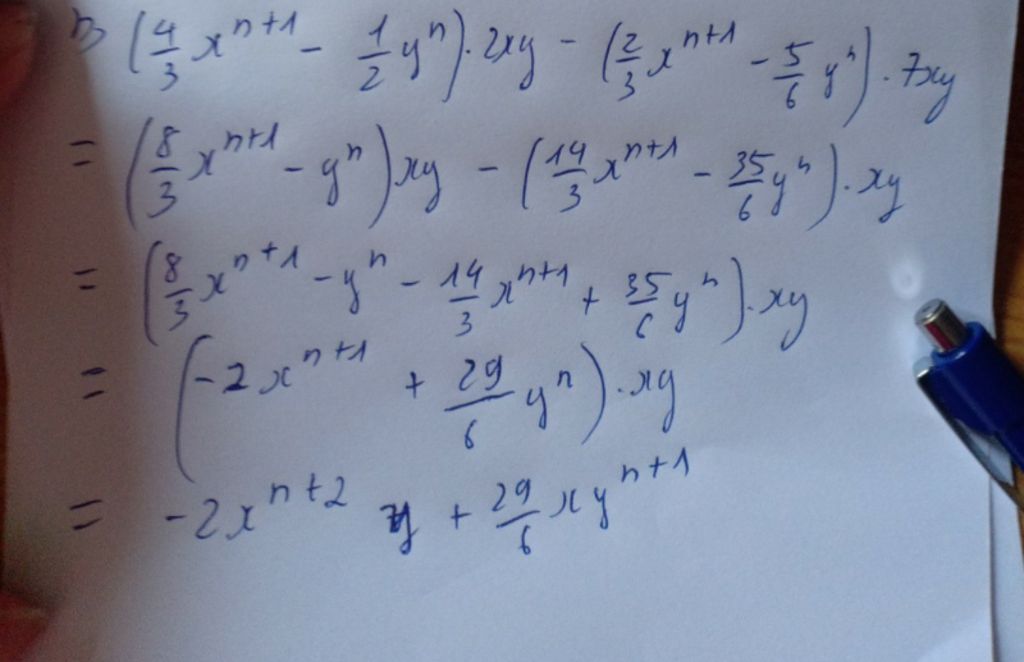 b) (4/3 x^{n+1} - 1/2 y^n) . 2xy - (2/3 x^{n+1} - 5/6 y^n) . 7xy
= (8/3 x^{n+1} - y^n) xy - (14/3 x^{n+1} - 35/6 y^n) . xy
= (8/3 x^{n+1} - y^n - 14/3 x^{n+1} + 35/6 y^n) . xy
= (-2x^{n+1} + 29/6 y^n) . xy
= -2x^{n+2} y + 29/6 xy^{n+1}